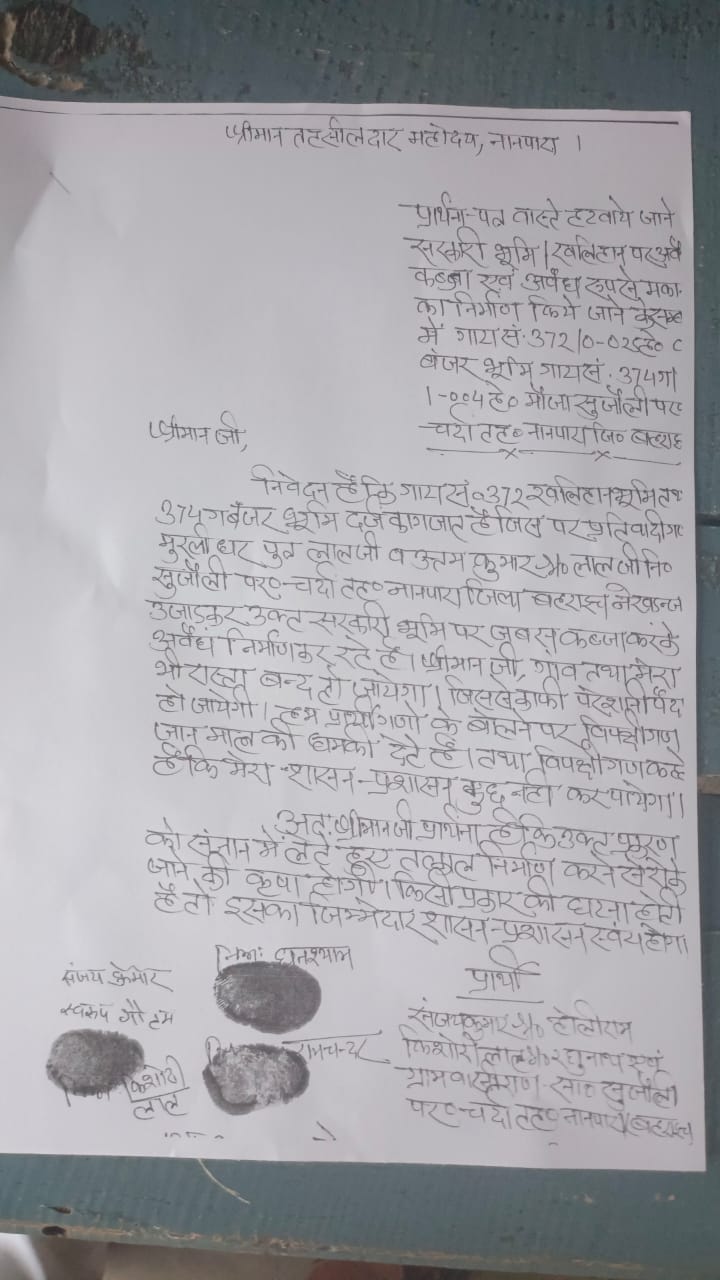 श्रीमान तहसीलदार महोदय, नानपारा ।
प्रार्थना-पत्र वास्ते हटवाये जाने
सरकारी भूमि / खलिहान पर अवै
कब्जा एवं अवैध रूप से मका
का निर्माण किये जाने के सम्ब
में गाटा सं. 372/0-026हे०
बंजर भूमि गाटा सं. 374ग/
1-004हे० मौजा सुजौली पर०
चर्दा तह० नानपारा जि० बहराइ
श्रीमान जी,
निवेदन है कि गाटा सं० 372 खलिहान भूमि तथ
374ग बंजर भूमि दर्ज कागजात है जिस पर प्रतिवादीगण
मुरलीधर पुत्र लालजी व उत्तम कुमार S/o लाल जी नि०
सुजौली पर०-चर्दा तह० नानपारा जिला बहराइच ने खडन्जा
उजाड़कर उक्त सरकारी भूमि पर जबरन कब्जा करके
अवैध निर्माण कर रहे है। श्रीमान जी, गांव तथा मेरा
भी रास्ता बन्द हो जायेगा। जिससे काफी परेशानी पैदा
हो जायेगी। हम प्रार्थीगणो के बोलने पर विपक्षीगण
जान माल की धमकी देते है। तथा विपक्षीगण कहते
है कि मेरा शासन-प्रशासन कुछ नही कर पायेगा।
अतः श्रीमान जी प्रार्थना है कि उक्त प्रकरण
को संज्ञान में लेते हुए तत्काल निर्माण करने से रोके
जाने की कृपा होगी। किसी प्रकार की घटना होती
है तो इसका जिम्मेदार शासन-प्रशासन स्वयं होगा।
प्रार्थी
संजय कुमार S/o होलीराम
किशोरी लाल S/o रघुनाथ एवं
ग्रामवासीगण सा० सुजौली
पर०-चर्दा तह० नानपारा बहराइच
संजय कुमार
स्वरूप गौतम
नि०अ० घनश्याम
रामचन्दर
किशोरी
लाल